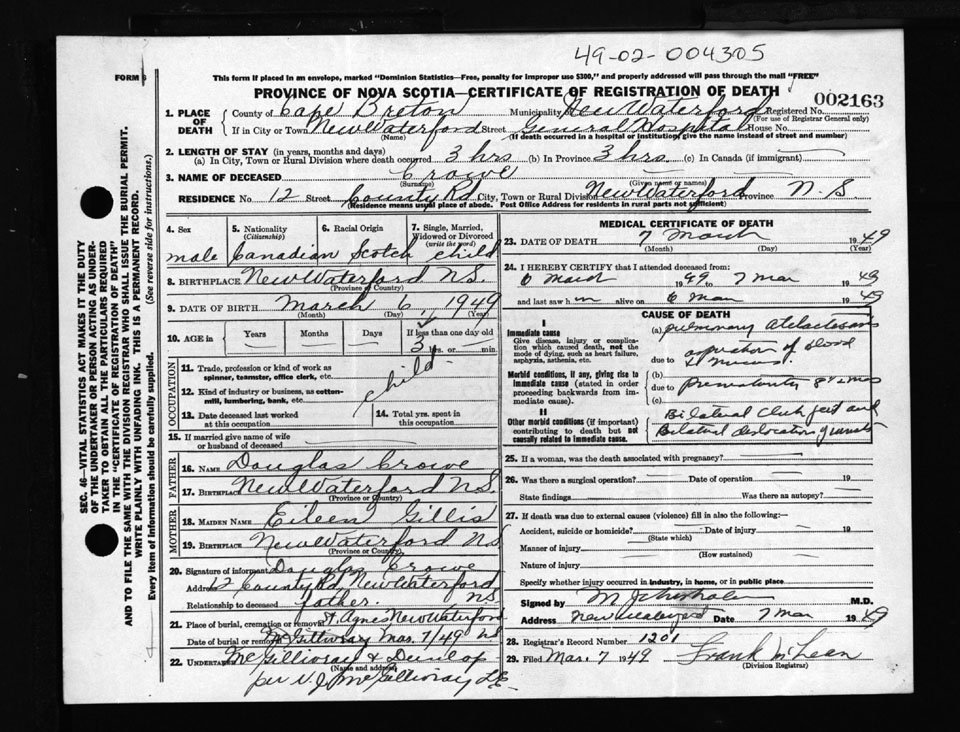 49-02-004305
FORM
This form if placed in an envelope, marked "Dominion Statistics—Free, penalty for improper use $300," and properly addressed will pass through the mail "FREE"
PROVINCE OF NOVA SCOTIA—CERTIFICATE OF REGISTRATION OF DEATH
002163
1. PLACE OF DEATH County of Cape Breton Municipality New Waterford Registered No.
(For use of Registrar General only)
If in City or Town New Waterford Street General Hospital House No.
(Name) (If death occurred in a hospital or institution, give the name instead of street and number)
2. LENGTH OF STAY (in years, months and days)
(a) In City, Town or Rural Division where death occurred 3 hrs (b) In Province 3 hrs (c) In Canada (if immigrant)
3. NAME OF DECEASED Crowe
(Surname) (Given name or names)
RESIDENCE No 12 Street County Rd City, Town or Rural Division New Waterford Province N.S
(Residence means usual place of abode. Post Office Address for residents in rural parts not sufficient)
4. Sex 5. Nationality (Citizenship) 6. Racial Origin 7. Single, Married, Widowed or Divorced (write the word)
male Canadian Scotch child
8. BIRTHPLACE New Waterford NS.
(Province or Country)
9. DATE OF BIRTH March 6 1949
(Month) (Day) (Year)
10. AGE in Years Months Days If less than one day old
3 hrs. or min.
OCCUPATION
11. Trade, profession or kind of work as spinner, teamster, office clerk, etc.
12. Kind of industry or business, as cotton-mill, lumbering, bank, etc.
child
13. Date deceased last worked at this occupation 14. Total yrs. spent in this occupation
15. If married give name of wife or husband of deceased
FATHER
16. NAME Douglas Crowe
17. BIRTHPLACE New Waterford NS.
(Province or Country)
MOTHER
18. MAIDEN NAME Eileen Gillis
19. BIRTHPLACE New Waterford NS
(Province or Country)
20. Signature of informant Douglas Crowe
Address 12 County Rd New Waterford
NS
Relationship to deceased father.
21. Place of burial, cremation or removal St Agnes New Waterford
Date of burial or removal Mar. 7/49 NS
22. Undertaker McGillivray & Dunlop
(Name and address)
per McGillivray
MEDICAL CERTIFICATE OF DEATH
23. DATE OF DEATH 7 March 1949
(Month) (Day) (Year)
24. I HEREBY CERTIFY that I attended deceased from:
6 March 1949 7 Mar 1949
and last saw him alive on 6 Mar 1949
CAUSE OF DEATH
I
Immediate cause
Give disease, injury or complication which caused death, not the mode of dying, such as heart failure, asphyxia, asthenia, etc.
(a) pulmonary atelectasis
due to aspiration of blood
Morbid conditions, if any, giving rise to immediate cause (stated in order proceeding backwards from immediate cause).
(b)
due to Prematurity 8½ mos
(c)
II
Other morbid conditions (if important) contributing to death but not causally related to immediate cause.
Bilateral Club feet and
Bilateral dislocation
25. If a woman, was the death associated with pregnancy?
26. Was there a surgical operation? Date of operation 19
State findings Was there an autopsy?
27. If death was due to external causes (violence) fill in also the following:—
Accident, suicide or homicide? Date of injury 19
(State which)
Manner of injury
(How sustained)
Nature of injury
Specify whether injury occurred in industry, in home, or in public place
Signed by M.D.
Address New Waterford Date 7 Mar 1949
28. Registrar's Record Number 1201
29. Filed Mar. 7 1949 Frank McLean
(Division Registrar)
SEC. 46—VITAL STATISTICS ACT MAKES IT THE DUTY
OF THE UNDERTAKER OR PERSON ACTING AS UNDER-
TAKER TO OBTAIN ALL THE PARTICULARS REQUIRED
IN THE "CERTIFICATE OF REGISTRATION OF DEATH"
AND TO FILE THE SAME WITH THE DIVISION REGISTRAR WHO SHALL ISSUE THE BURIAL PERMIT.
WRITE PLAINLY WITH UNFADING INK. THIS IS A PERMANENT RECORD.
Every item of information should be carefully supplied. (See reverse side for instructions.)